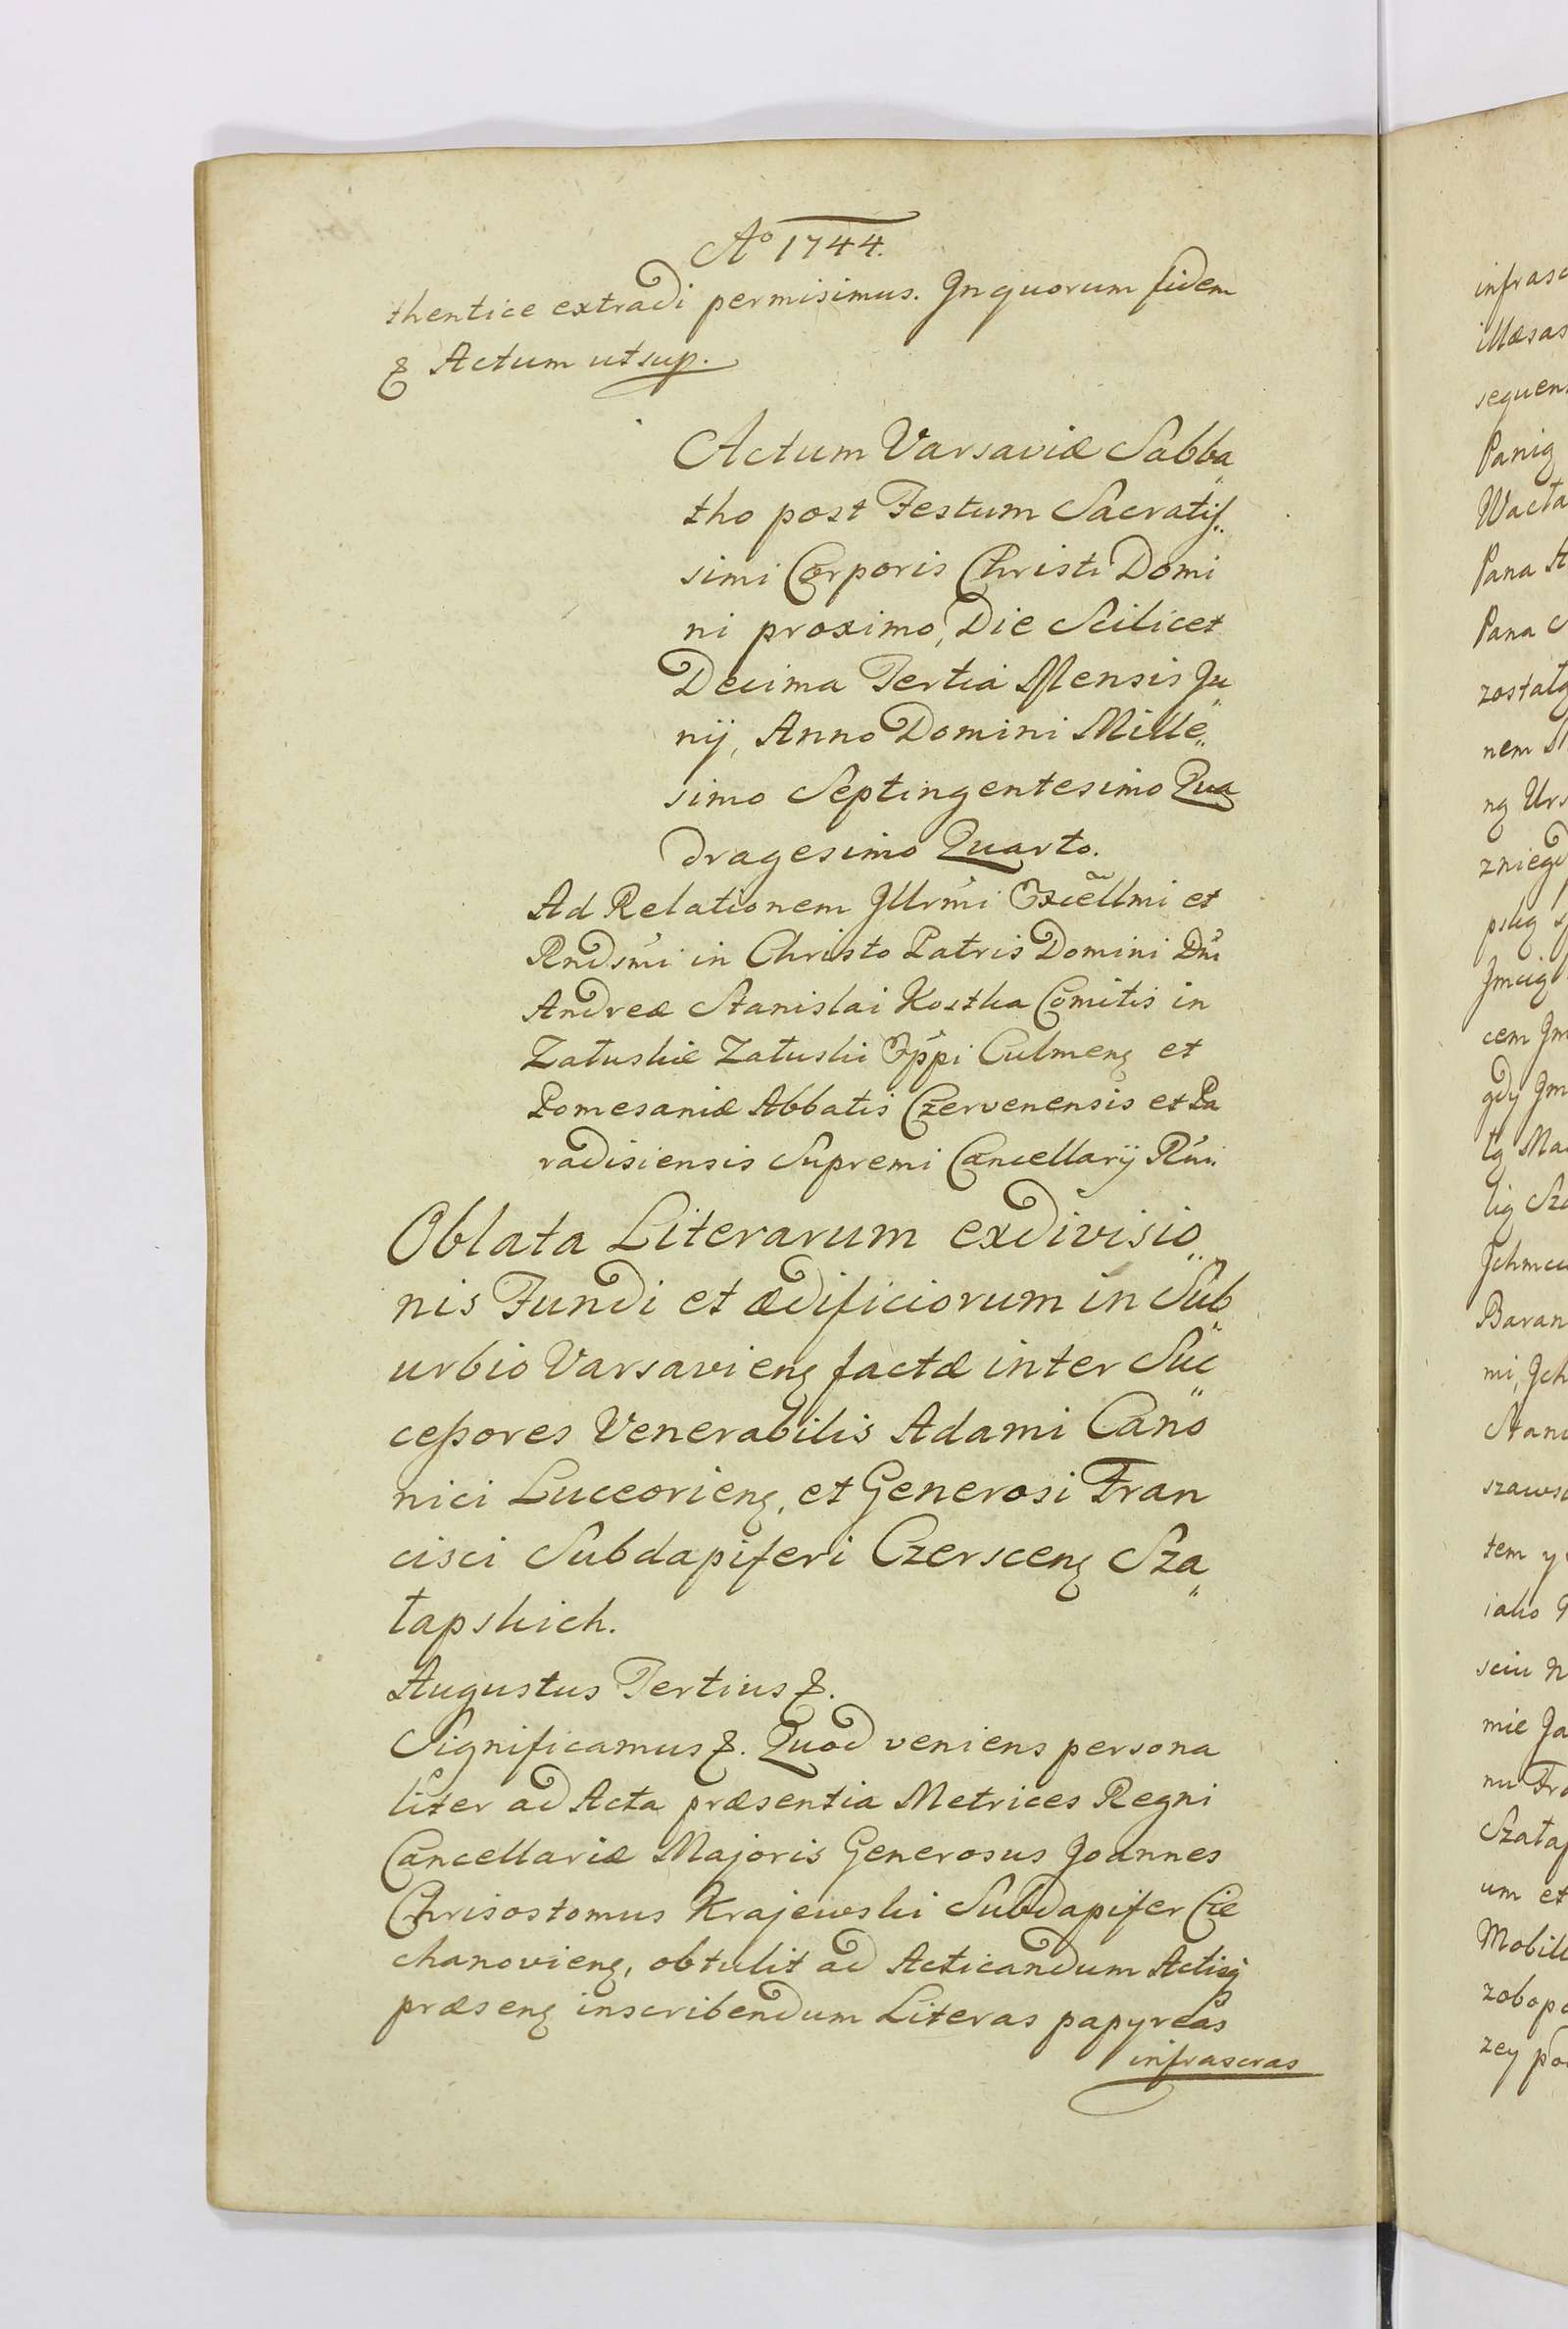 Aº 1744.
thentice extradi permisimus. Jnquorum fidem
& Actum utsup.
Actum Varsaviæ Sabba„
tho post Festum Sacratiſ„
simi Corporis Christi Domi
ni proximo, Die Scilicet
Decima Tertia Mensis Ju„
nij, Anno Domini Mille„
simo Septingentesimo Qua
dragesimo Quarto.
Ad Relationem Jllrm̃i Excẽllmi et
Rndsm̃i in Christo Patris Domini Dñi
Andreæ Stanislai Kostka Comitis in
Załuskie Załuski Ep̃pi Culmenꝫ et
Pomesaniæ Abbatis Czervenensis et Pa
radisiensis Supremi Cancellarij Rñi.
Oblata Literarum exdivisio„
nis Fundi et ædificiorum in Sub„
urbio Varsavienꝫ factæ inter Suc„
ceßores Venerabilis Adami Cano
nici Luceorienꝫ, et Generosi Fran
cisci Subdapiferi Czerscenꝫ Sza„
łapskich.
Augustus Tertius &.
Significamus &. Quod veniens persona
liter ad Acta præsentia Metrices Regni
Cancellariæ Majoris Generosus Joannes
Chrisostomus Krajewski Subdapifer Cie
chanovienꝫ, obtulit ad Acticandum Actisq́
præsenꝫ inscribendum Literas papyreas
infrascras
infrasc
illæsas
sequen
Panią
Wacła
Pana
Pana
zostałą
nem
ną Urs
zniegd
Jmcią
cem Jm
gdy Jm
tą Ma
lią Sza
Jchmcu
Baran
mi, Jch
Stani
szaws
tem y
iako
sciu N
mie Ja
nu Fra
Szałap
um et
Mobili
zobopo
zey po